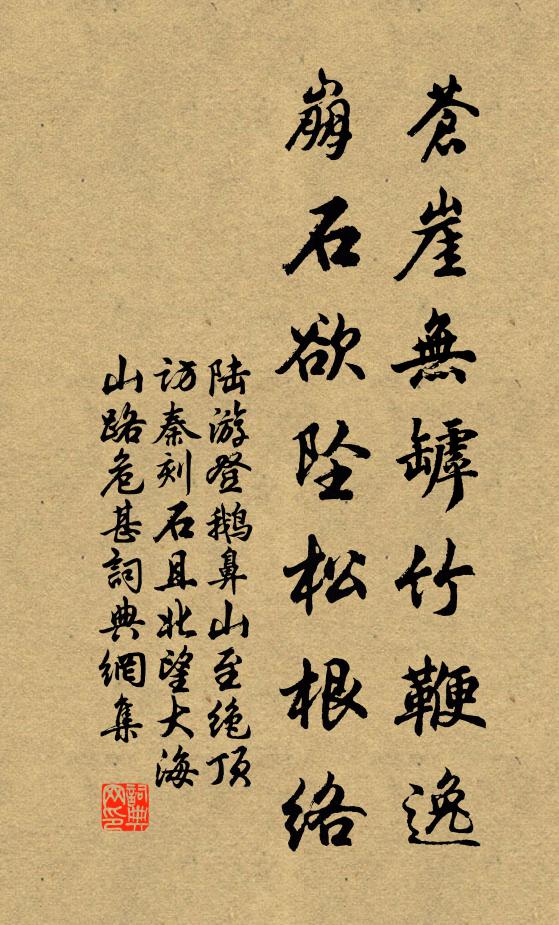 蒼崖無罅竹鞭逸
崩石欲坠松根络
陆游登鹅鼻山至绝顶
访秦刻石且北望大海
山路危甚詞典網集
詞典网印